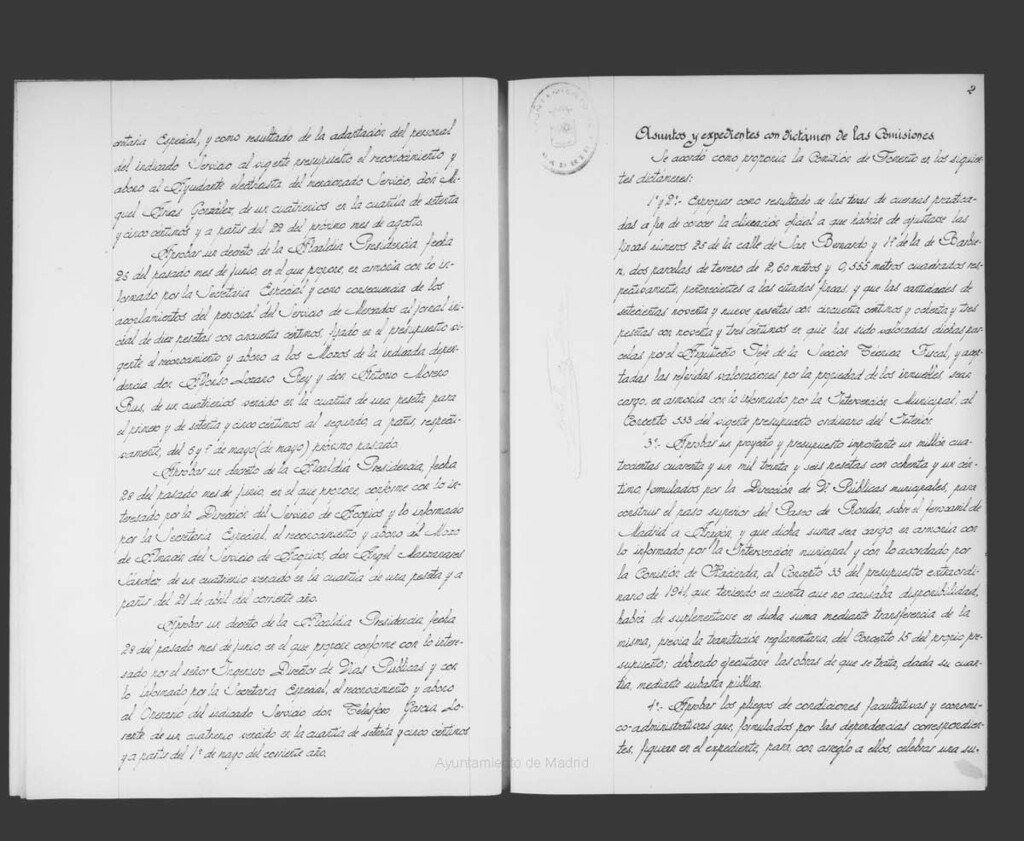 cretaria Especial, y como resultado de la adaptación del personal
del indicado Servicio al vigente presupuesto el reconocimiento y
abono al Ayudante electricista del mencionado Servicio, don Mi-
guel Arias González, de un cuatrienio en la cuantía de setenta
y cinco céntimos y a partir del 22 del próximo mes de agosto.
Aprobar un decreto de la Alcaldía Presidencia, fecha
25 del pasado mes de junio, en el que propone, en armonía con lo in-
formado por la Secretaría Especial y como consecuencia de los
acoplamientos del personal del Servicio de Mercados al jornal ini-
cial de diez pesetas con cincuenta céntimos, fijado en el presupuesto vi-
gente el reconocimiento y abono a los Mozos de la indicada depen-
dencia don Alfonso Lozano Rey y don Antonio Moreno
Rus, de un cuatrienio vencido en la cuantía de una peseta para
el primero y de setenta y cinco céntimos al segundo, a partir, respecti-
vamente, del 5 y 1º de mayo (de mayo) próximo pasado.
Aprobar un decreto de la Alcaldía Presidencia, fecha
28 del pasado mes de junio, en el que propone, conforme con lo in-
teresado por la Dirección del Servicio de Acopios y lo informado
por la Secretaría Especial, el reconocimiento y abono al Mozo
de Almacén del Servicio de Acopios, don Angel Manzanares
Sánchez, de un cuatrienio vencido en la cuantía de una peseta y a
partir del 21 de abril del corriente año.
Aprobar un decreto de la Alcaldía Presidencia fecha
28 del pasado mes de junio, en el que propone conforme con lo intere-
sado por el señor Ingeniero Director de Vías Públicas y con
lo informado por la Secretaría Especial, el reconocimiento y abono
al Operario del indicado Servicio don Telesforo García Lo-
rente de un cuatrienio vencido en la cuantía de setenta y cinco céntimos
y a partir del 1º de mayo del corriente año.
2
MADRID
Asuntos y expedientes con dictámen de las Comisiones
Se acordó como proponía la Comisión de Fomento en los siguien-
tes dictámenes:
1º y 2º.- Expropiar como resultado de las tiras de cuerdas practica-
das a fin de conocer la alineación oficial a que habrán de ajustarse las
fincas números 25 de la calle de San Bernardo y 1º de la de
dos parcelas de terreno de 2,60 metros y 0,555 metros cuadrados res-
pectivamente, pertenecientes a las citadas fincas, y que las cantidades de
setecientas noventa y nueve pesetas con cincuenta céntimos y ochenta y tres
pesetas con noventa y tres céntimos en que han sido valoradas dichas par-
celas por el Arquitecto Jefe de la Sección Técnica Fiscal, y acep-
tadas las referidas valoraciones por la propiedad de los inmuebles, sean
cargo, en armonía con lo informado por la Intervención Municipal, al
Concepto 533 del vigente presupuesto ordinario del Interior.
3º.- Aprobar un proyecto y presupuesto importante un millón cua-
trocientas cuarenta y un mil treinta y seis pesetas con ochenta y un cén-
timo, formulados por la Dirección de V. Públicas municipales, para
construir el paso superior del Paseo de Ronda, sobre el ferrocarril de
Madrid a Aragón, y que dicha suma sea cargo, en armonía con
lo informado por la Intervención municipal y con lo acordado por
la Comisión de Hacienda, al Concepto 33 del presupuesto extraordi-
nario de 1941, que teniendo en cuenta que no acusaba disponibilidad,
habrá de suplementarse en dicha suma mediante transferencia de la
misma, previa la tramitación reglamentaria, del Concepto 15 del propio pre-
supuesto; debiendo ejecutarse las obras de que se trata, dada su cuan-
tía, mediante subasta pública.
4º.- Aprobar los pliegos de condiciones facultativas y económi-
co-administrativas que, formulados por las dependencias correspondien-
tes, figuran en el expediente, para, con arreglo a ellos, celebrar una su-
Ayuntamiento de Madrid